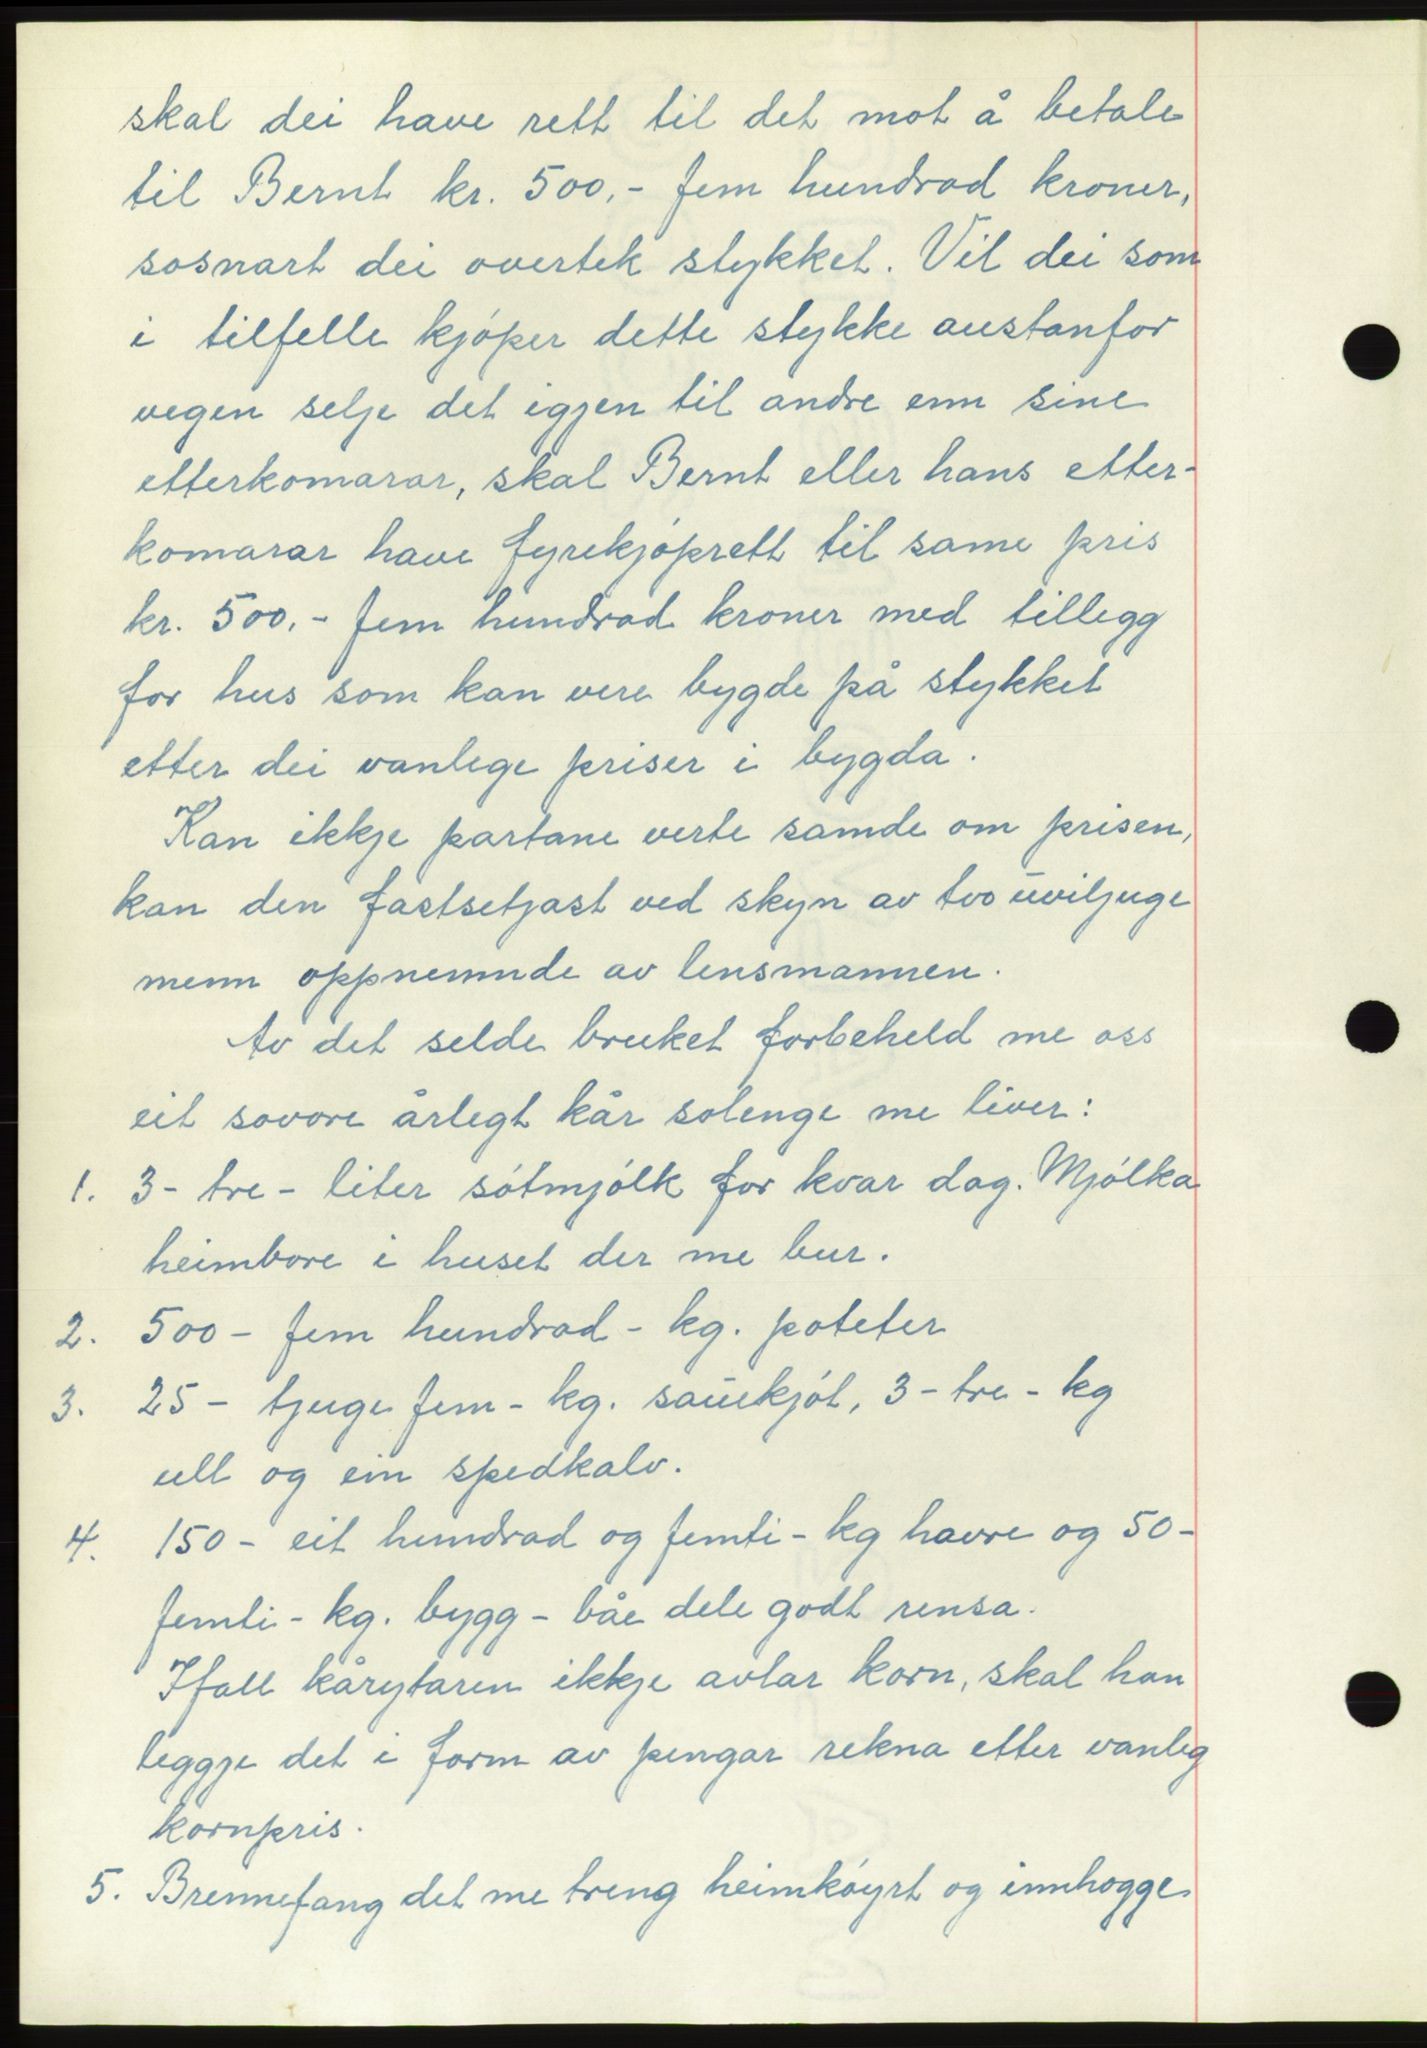 skal dei have rett til det mot å betale
til Bernt kr. 500,- fem hundrad kroner,
sosnart dei overtek stykket. Vil dei som
i tilfelle kjóper dette stykke austanfor
vegen selje det igjen til andre enn sine
etterkomarar, skal Bernt eller hans etter-
komarar have fyrekjóprett til same pris
kr. 500,- fem hundrad kroner med tillegg
for hus som kan vere bygde på stykket
etter dei vanlege priser i bygda.
Kan ikkje partane verte samde om prisen,
kan den fastsetjast ved skyn av tvo uviljuge
menn oppnemnde av lensmannen.
Av det selde bruket forbeheld me oss
eit sovore årlegt kår solenge me liver:
1. 3- tre - liter sótmjólk for kvar dag. Mjólka
heimbore i huset der me bur.
2. 500 - fem hundrad - kg. poteter
3. 25 - tjuge fem - kg. sauekjót, 3 - tre - kg
ull og ein spedkalv.
4. 150 - eit hundrad og femti - kg havre og 50 -
femti - kg. bygg - båe dele godt rensa.
Ifall kårytaren ikkje avlar korn, skal han
leggje det i form av pengar rekna etter vanleg
kornpris.
5. Brennefang det me treng heimkóyrt og innhogge